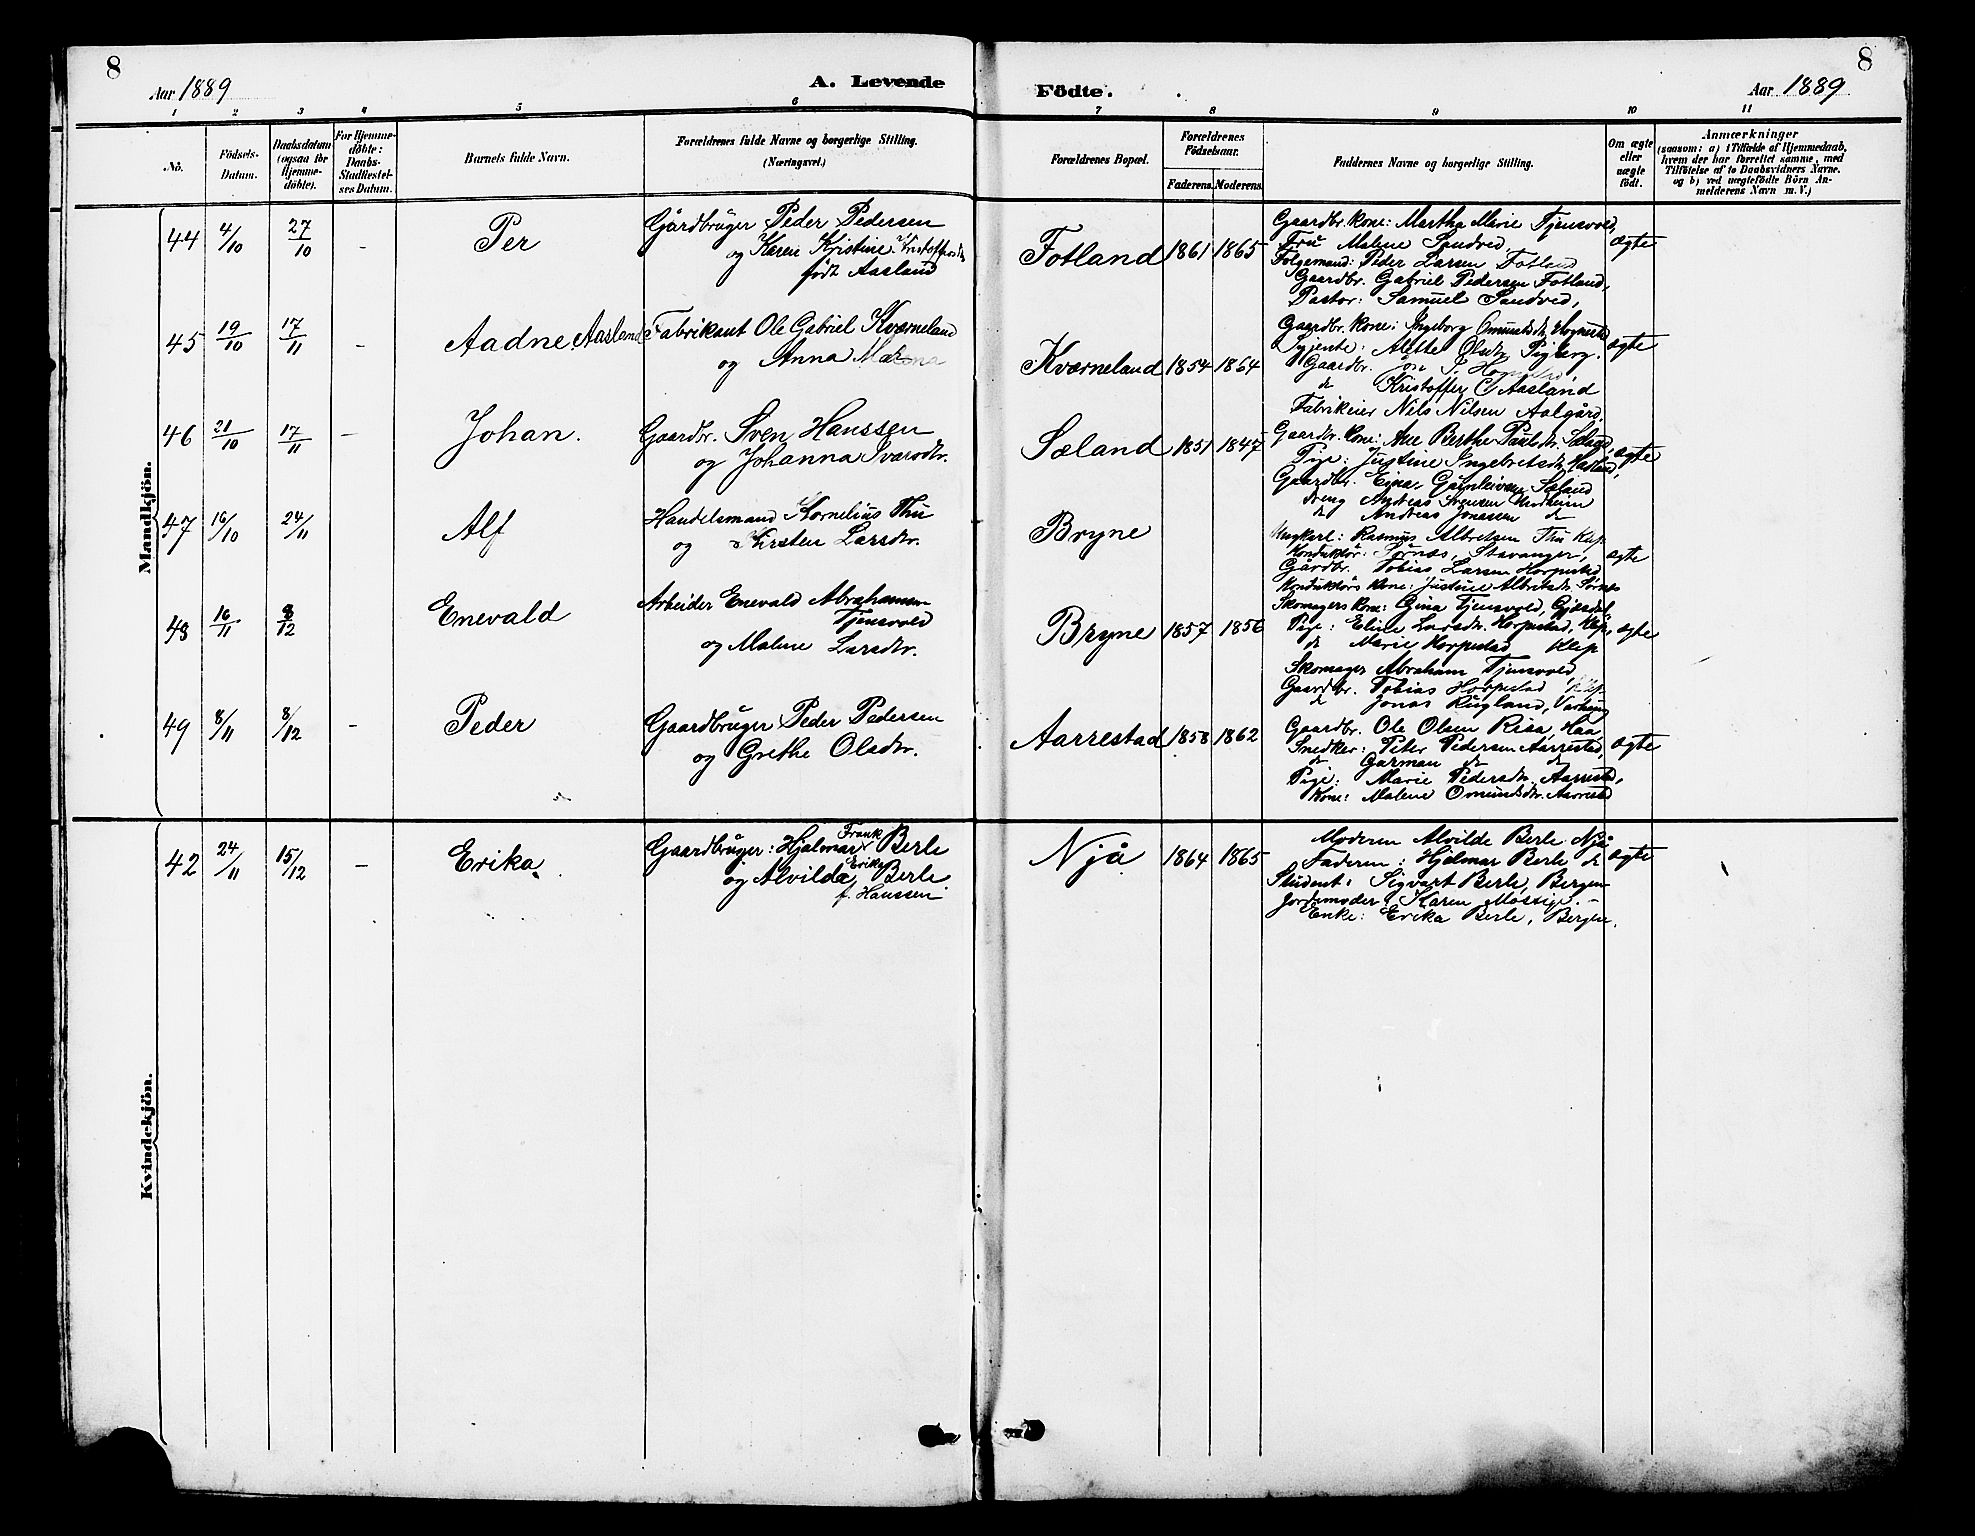 8
Aar 1889
A. Levende
Födte.
Aar 1889
8
1 2 3 4 5 6 7 8 9 10 11
No.
Födsels-Datum.
Daabsdatum (ogsaa for Hjemmedöbte).
For Hjemmedöbte: Daabs-Stadfæstelses Datum.
Barnets fulde Navn.
Forældrenes fulde Navne og borgerlige Stilling.
(Næringsvei.)
Forældrenes Bopæl.
Forældrenes Födselsaar.
Faderens. Moderens.
Faddernes Navne og borgerlige Stilling.
Om ægte eller uægte födt.
Anmærkninger
(saasom: a) i Tilfælde af Hjemmedaab, hvem der har forrettet samme, med Tilföielse af to Daabsvidners Navne. og b) ved uægtefödte Börn Anmelderens Navn m. V.)
Mandkjön.
44 4/10 27/10 - Per
Gårdbruger Peder Pedersen
og Karen Kristine
født Aasland
Fotland 1861 1865
Gaardbr. kone: Martha Marie Tjensvold,
Fru Malene Sandved,
Følgemand: Peder Larsen Fotland
Gaardbr. Gabriel Pedersen Fotland,
Pastor: Samuel Sandved,
ægte
45 19/10 17/11 - Aadne Aasland
Fabrikant Ole Gabriel Kværneland
og Anna
Kværneland 1854 1864
Gaardbr. kone: Ingeborg Omundsdtr.
Alette Olsdtr.
Gaardbr.
do Kristoffer Aasland
Fabrikeier Nils Nilsen Aalgård
ægte
46 21/10 17/11 - Johan.
Gaardbr. Sven Hanssen
og Johanna
Sæland 1851 1847
Gaardbr. kone: Ane Berthe
Pige: Justine Ingebretsdtr.
Gaardbr. Sæland
dreng Andreas Svensen
do Andreas Jonassen do
ægte
47 16/10 24/11 Alf
Handelsmand Kornelius Thu
og Kirsten Larsdtr.
Bryne
Ungkarl: Rasmus Albretsen Thu Klep
Konduktør: Sørnæs, Stavanger,
Gårdbr. Tobias Larsen Horpestad
Konduktørs kone: Justine
ægte
48 16/11 8/12 Enevald
Arbeider Enevald Abrahamsen
Tjensvold
og Malene Larsdtr.
Bryne 1857 1856
Skomagers kone: Gina Tjensvold, Gjesdal,
Pige: Eline Larsdtr. Horpestad, Klep,
do Marie Horpestad Klep
Skomager Abraham Tjensvold
Gaardbr. Tobias Horpestad
do Jonas Rugland, Varhaug
ægte
49 8/11 8/12 - Peder
Gaardbruger Peder Pedersen
og Grethe Olsdtr.
Aarrestad 1858 1862
Gaardbr. Ole Olsen Riss, Haa
Snedker: Peter Pedersen Aarrestad,
do Garman do do
Pige: Marie Pedersdtr. Aarrestad,
Kone: Malene Omundsdtr. Aarrestad
ægte
Kvindekjön.
42 24/11 15/12 - Erika.
Frank
Gaardbruger: Hjalmar Berle
og Alvilde Berle
f. Hanssen
Njå 1864 1865
Moderen Alvilde Berle Njå
Faderen: Hjalmar Berle do
Student: Sigvart Berle, Bergen
Jordemoder: Karen Mossige. -
Enke: Erika Berle, Bergen.
ægte